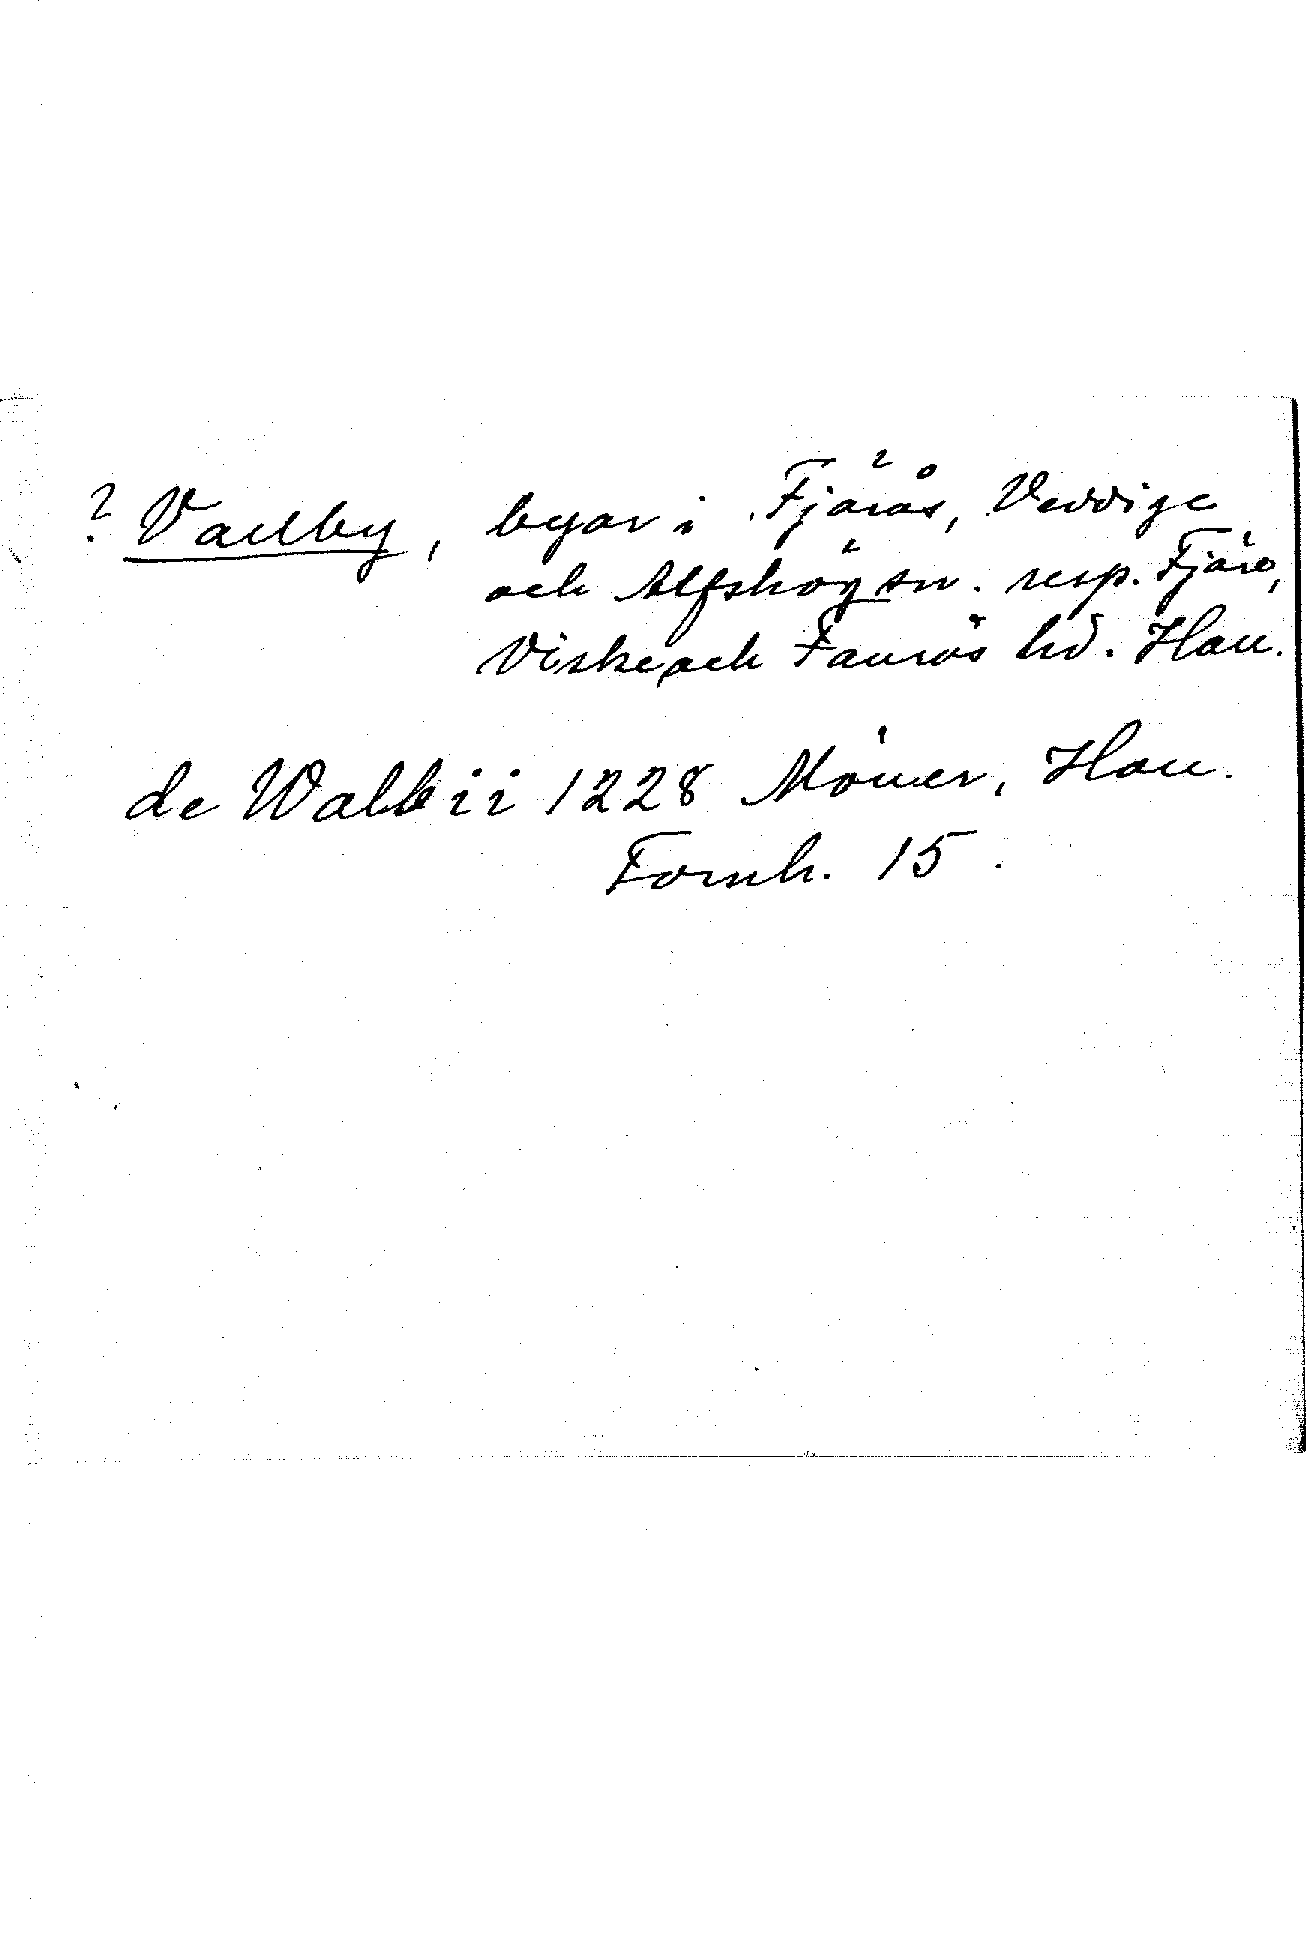 ? Vallby, byar i Fjärås, Veddige
och Alfshög sn. resp. Fjäre,
Viske och Faurås hd. Hall.
de Walbii 1228 Möller, Hall.
Fornh. 15.